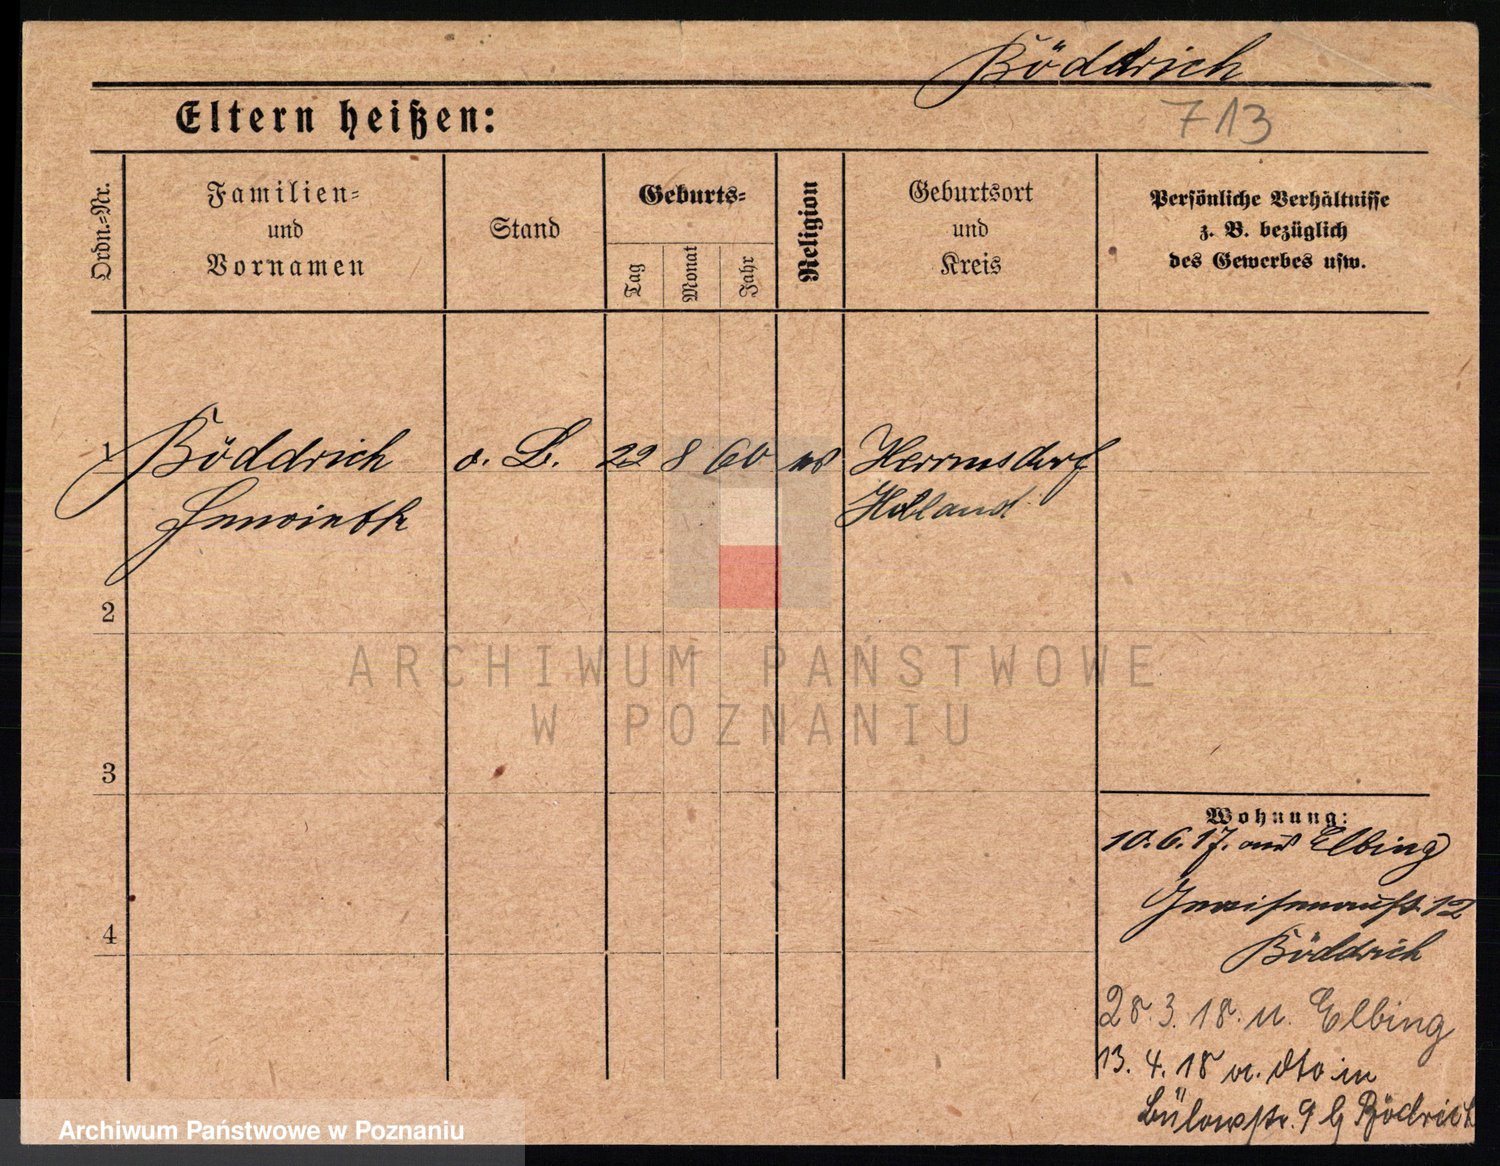 Böddrich
Eltern heißen:
713
Ordn.-Nr.
Familien-
und
Vornamen
Stand
Geburts-
Tag
Monat
Jahr
Religion
Geburtsort
und
Kreis
Persönliche Verhältnisse
z. B. bezüglich
des Gewerbes usw.
1 Böddrich o. B. 22 8 60 Herrnsdorf
Holland
2
3
4
ARCHIWUM PAŃSTWOWE
W POZNANIU
Wohnung:
10.6.17. aus Elbing
Gneisenaustr. 12
Böddrich
28.3.18. n. Elbing
13.4.18 v. dto in
Bülowstr. 9 b Bödrich
Archiwum Państwowe w Poznaniu